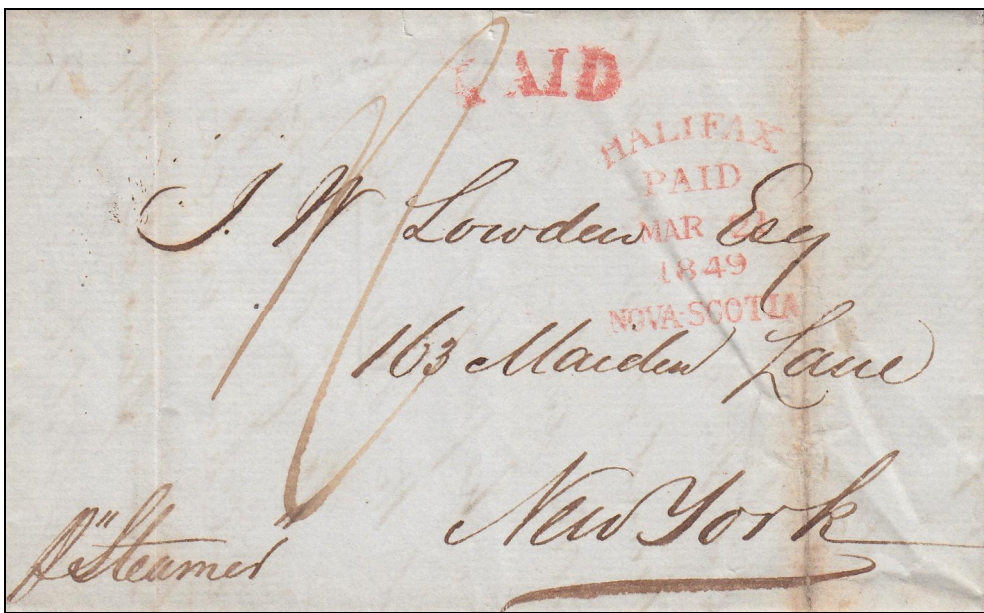 PAID
HALIFAX
PAID
MAR
1849
NOVA-SCOTIA
J. W Lowden Esq
163 Maiden Lane
New York
p "Steamer"